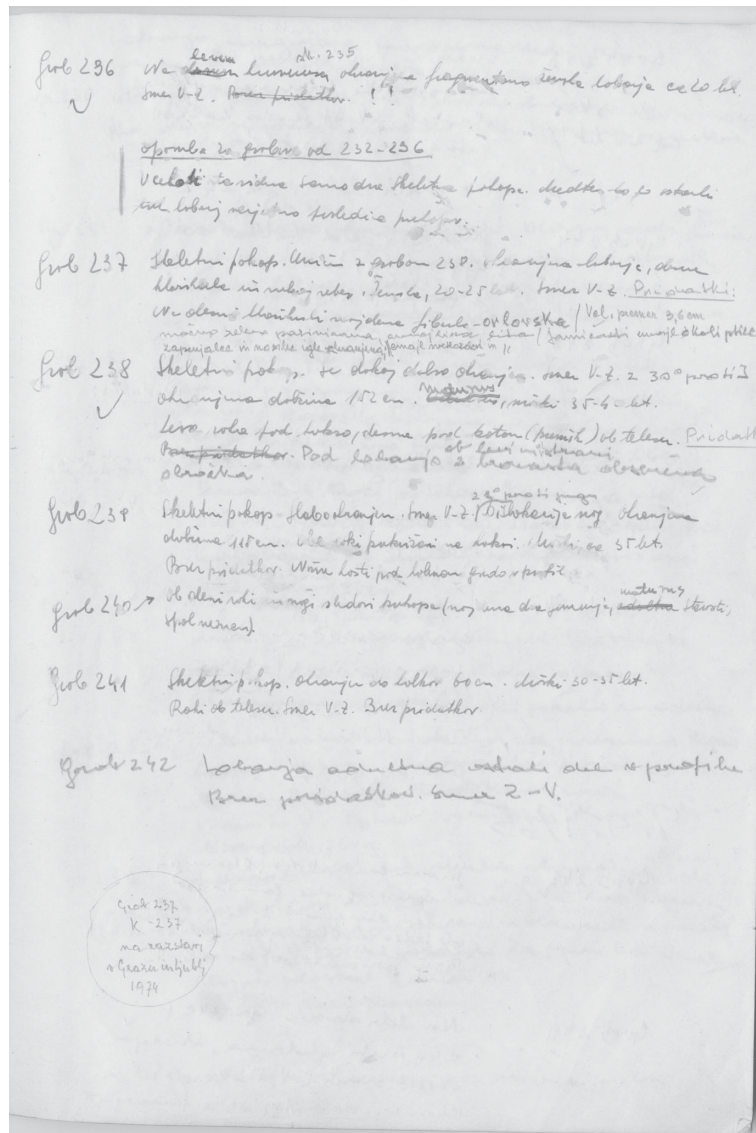 levem sk. 235
Grob 236 Na desnem humerusu ohranjena fragmentarno ženska lobanja ca 20 let.
Smer V-Z. Brez pridatkov. !!
opomba za grobove od 232-236
V celoti ta vidna samo dva skeletna pokopa.
tudi lobanj verjetno posledica prekopav.
Grob 237 Skeletni pokop. Uničen z grobom 238. Ohranjena lobanja, desna
klavikula in nekaj reber. Ženska, 20-25 let. Smer V-Z. Pridatki:
Na desni klavikuli najdena fibula - orlovska / Vel. premer 3,6 cm
močno zelena patinirana,
zapenjalec in nosilec igle ohranjena,
Grob 238 Skeletni pokop. Še dokaj dobro ohranjen. Smer V-Z. z 30° proti J
maturus
ohranjena dolžina 152 cm. moški 35-4 let.
Leva roka pod lobanjo, desna pod kotom ob telesu. Pridatki
Brez pridatkov. Pod lobanjo ob levi strani 2 bronasta obsenčna
obročka.
z 20° proti jugu
Grob 239 Skeletni pokop. Slabo ohranjen. Smer V-Z. / Dislokacije nog. Ohranjena
dolžina 115 cm. Obe roki prekrižani na kolkih. Moški ca 35 let.
Brez pridatkov. Nožne kosti pod kolenom gredo v profil
maturus
Grob 240 → Ob desni roki in nogi sledovi pokopa (noga ima dva ), adultna starost,
spol neznan).
Grob 241 Skeletni pokop. Ohranjen do kolkov 60 cm. Moški 30-35 let.
Roki ob telesu. Smer V-Z. Brez pridatkov.
Grob 242 Lobanja adultna ostali del v profilu
Brez pridatkov. Smer Z-V.
Grob 237
K - 237
na razstavi
v Grazu in Ljublj
1974